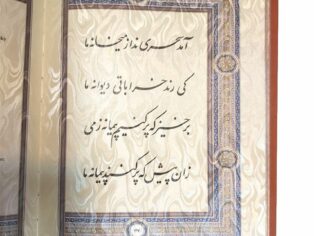 آمد سحری ندا ز میخانه ما
کی رند خراباتی دیوانه ما
برخیز که پر کنیم پیمانه ز می
زان پیش که پر کنند پیمانه ما